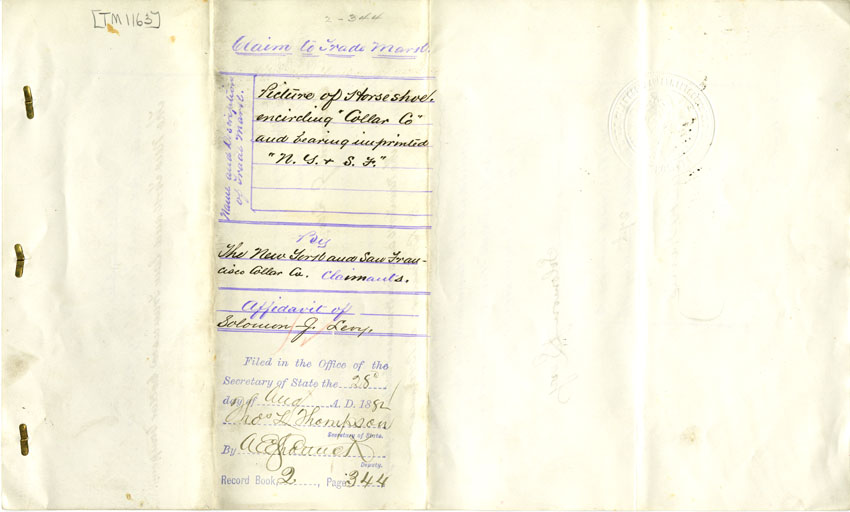 [TM1163]
2-344
Claim to Trade Mark.
Name and Description
of Trade Mark.
Picture of Horseshoe.
encircling "Collar Co"
and bearing imprinted
"N. Y. & S. F."
By
The New York and San Fran-
cisco Collar Co. Claimants.
Affidavit of
Solomon J. Levy.
Filed in the Office of the
Secretary of State the 28"
day of Aug A. D. 1882
Thos L Thompson
Secretary of State.
By
Deputy.
Record Book, 2, Page 344